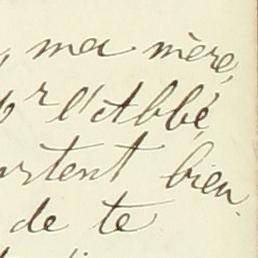 , ma mère,
r l'Abbé,
rtent bien.
de te